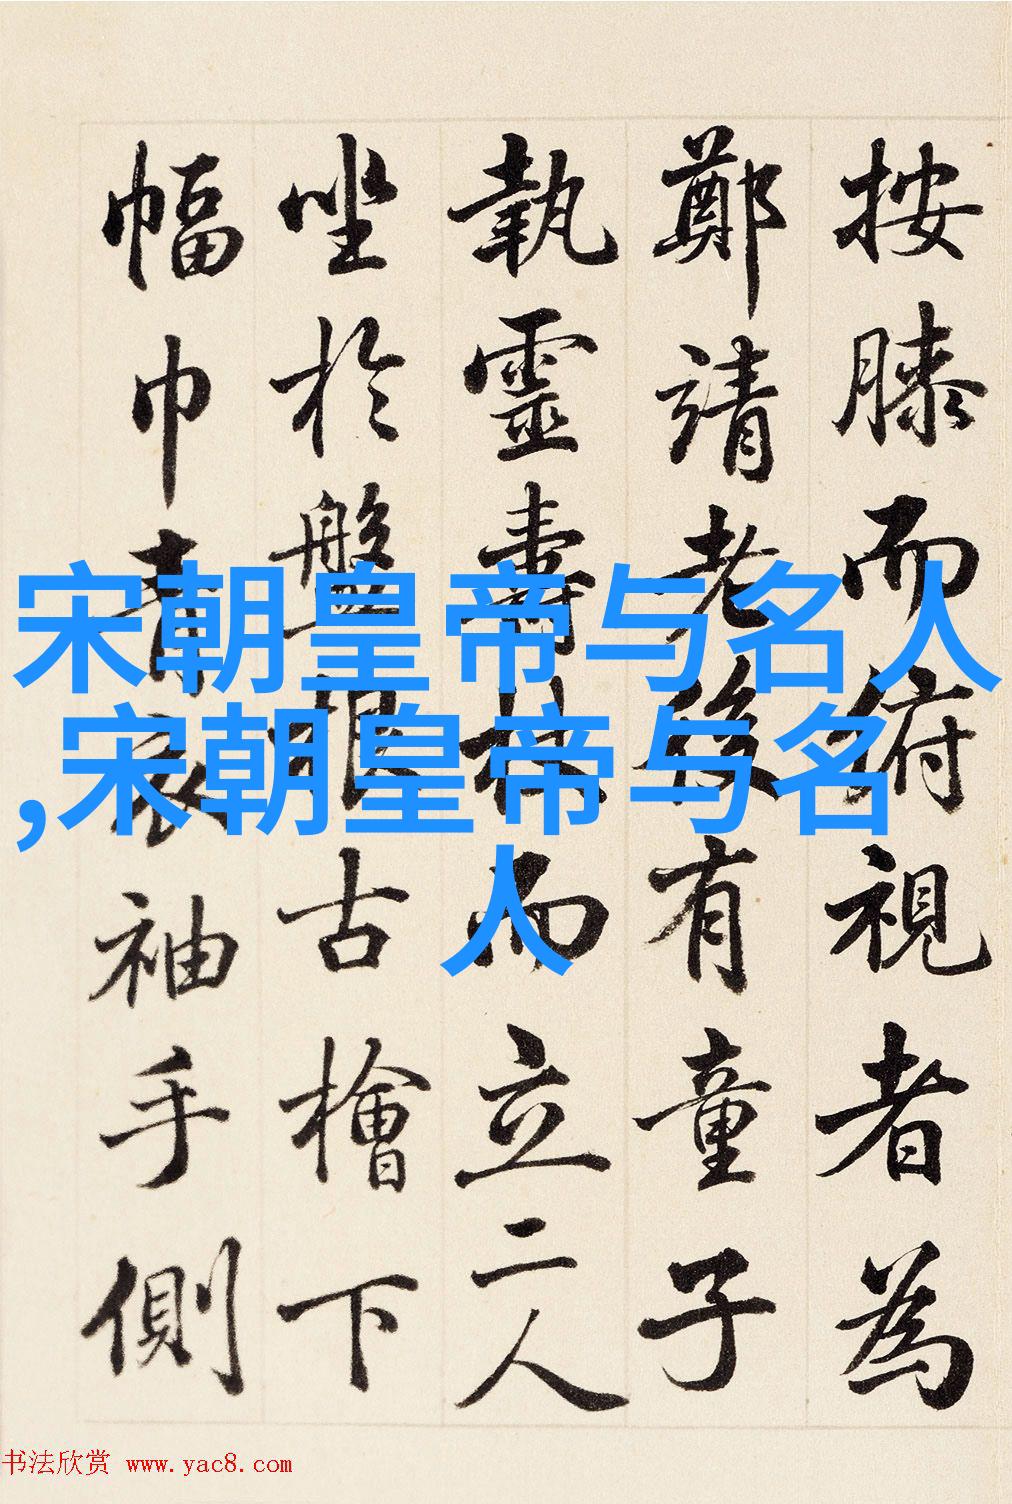 按膝而俯視者為
鄭靖老後有童子
執靈壽杖而立二人
坐於盤根古檜下
幅巾青衣袖手側
宋朝皇帝与名人
,宋朝皇帝与名
人
书法欣赏 www.yac8.com